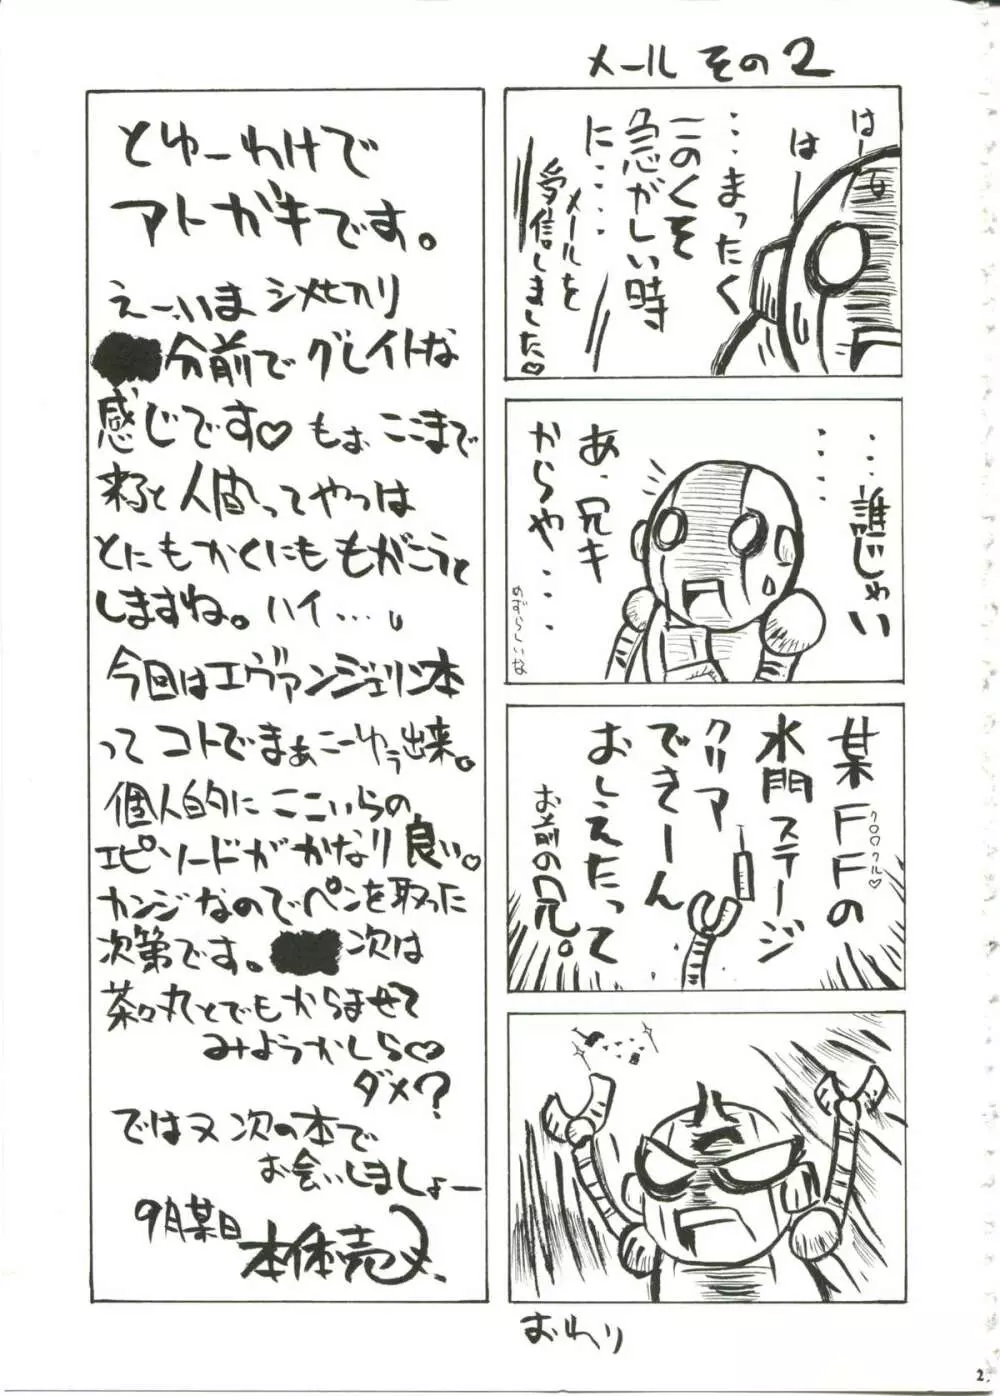 メール その2
はー
はー
・・・まったく
このくそ
急がしい時
に・・・・
メールを
受信しました♡
・・・・・・誰じゃい
あ、兄キ
からや・・・
めずらしいな
某FFの
クロロクル♡
水門ステージ
クリア
できーん
おしえたって
お前の兄。
おわり
とゆーわけで
アトガキです。
えー、いま シメセカリ
分前で グレイトな
感じです♡ もぉ ここまで
来ると 人間ってやつは
とにもかくにも もがこうと
しますね。ハイ…。
今回はエヴァンジェリン本
って コトでまぁこーゆう出来。
個人的に ここいらの
エピソードが かなり 良い。
カンジなので ペンを取った
次第です。 次は
茶々丸とでも からませて
みようかしら♡
ダメ?
ではヌ 次の本で
お会いしましょー
9月某日
本体売メ
2